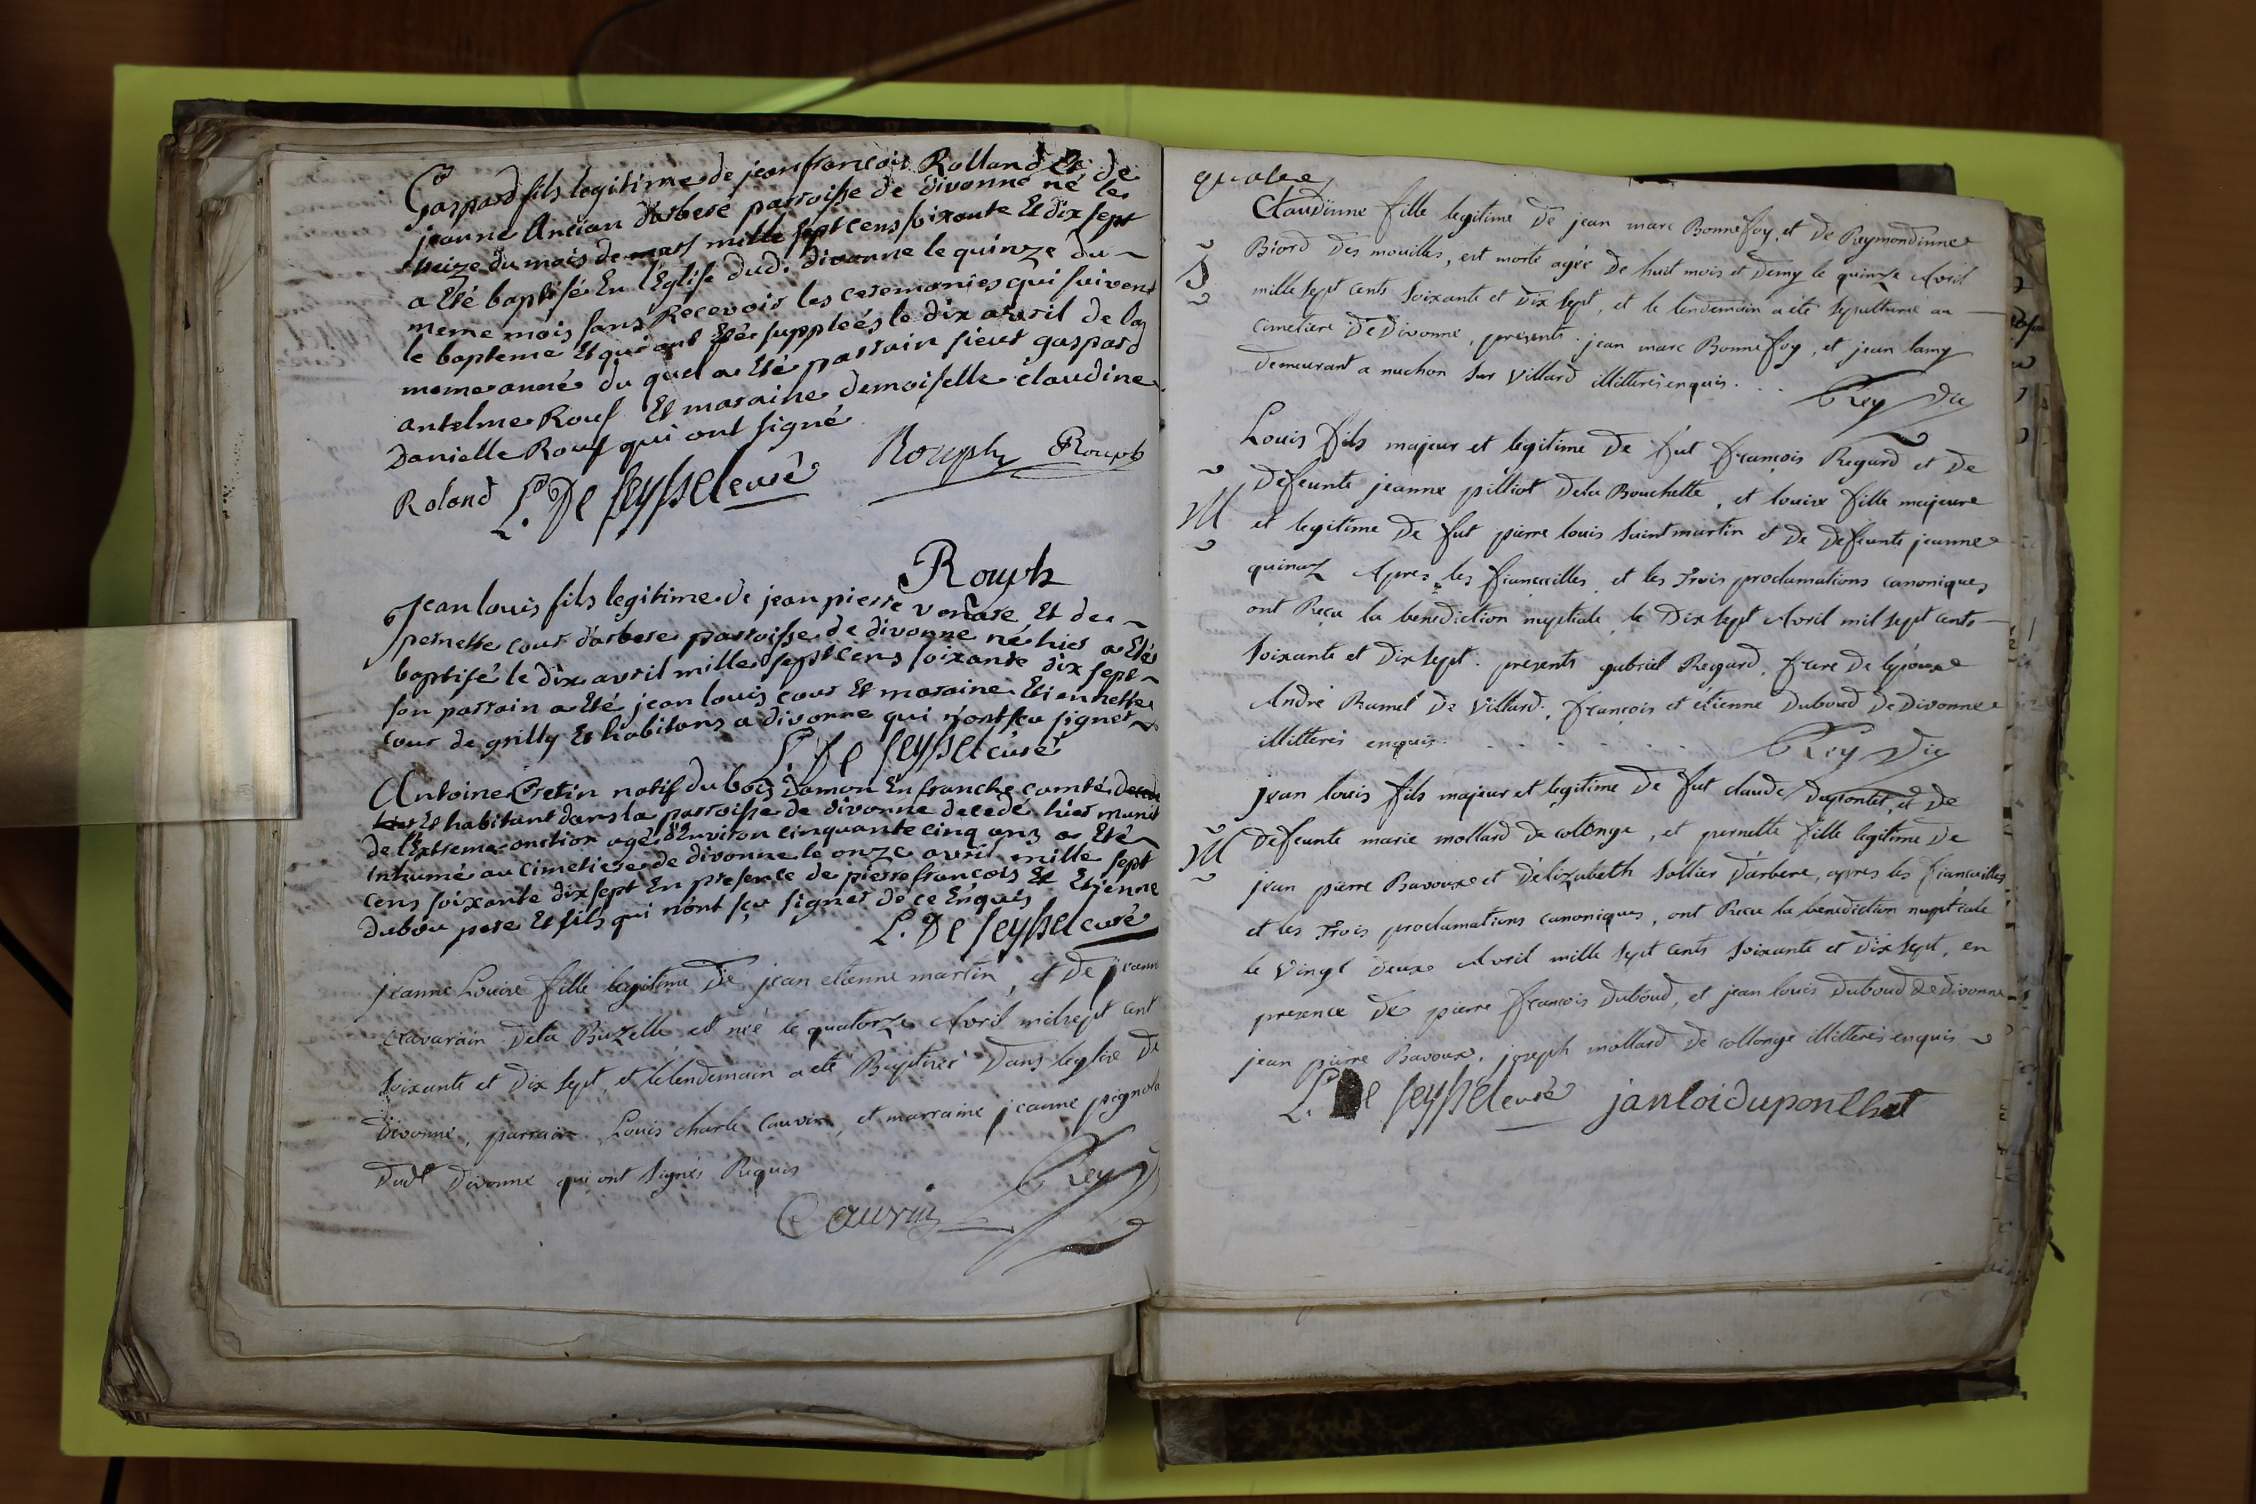 Gaspard fils legitime de jean françois Rolland Et de
jeanne Ancian d'arbere parroisse de divonne né le
treize du mois de mars mille sept cens soixante Et dix sept
a Eté baptisé En l'Eglise dud. divonne le quinze du
meme mois sans Recevoir les ceremonies qui suivent
le bapteme Et qui ont Eté suppleés le dix avril de la
meme année du quel a Eté parrain sieur gaspard
antelme Rouf Et maraine demoiselle claudine
Danielle Rouf qui ont signé
Rouph Rouph
Roland L. De Seyssel curé
Rouph
Jean louis fils legitime de jean pierre Et de
pernette cour d'arbere parroisse de divonne né hier a Eté
baptisé le dix avril mille sept cens soixante dix sept
son parrain a Eté jean louis cour Et maraine Etiennette
cour de grilly Et habitans a divonne qui n'ont sçu signer
L. De Seyssel curé
Antoine Cretin natif du bois Damon En franche comté
Et habitant dans la parroisse de divonne decedé hier munit
de l'Extreme onction agé d'Environ cinquante cinq ans a Eté
inhumé au cimetiere de divonne le onze avril mille sept
cens soixante dix sept En presence de pierre françois Et Etienne
dubou pere Et fils qui n'ont sçu signer de ce Enquis
L. De Seyssel curé
jeanne Louise fille legitime De jean etienne martin, et De jeann
Dela est neé le quatorze Avril mil sept cent
soixante et Dix sept, et le lendemain a eté Baptiseé Dans leglise De
Divonne, parrain Louis charle Cauvin, et marraine jeanne
Dudt Divonne qui ont signés Requis
Cauvin Rey
Claudinne fille legitime De jean marc Bonnefoy, et De Reymondinne
Biord Des mouilles, est morte ageé De huit mois et Demy le quinze Avril
S
mille sept cents soixante et Dix sept, et le lendemain a eté sepulturéé au
cimetiere De Divonne, presents jean marc Bonnefoy, et jean lamy
Demeurant a nuchon sur Villard illitterés enquis.
Rey Vic
Louis fils majeur et legitime De fut françois Regard et De
Defeunte jeanne pilliot Dela Bouchette, et louise fille majeure
M
et legitime De fut pierre louis Saint martin et De Defeunte jeanne
quinaz Apres les fiancailles, et les Trois proclamations canoniques
ont Reçu la benediction nuptiale, le Dix sept Avril mil sept cents
soixante et Dix sept. presents gabriel Regard, frere De lepoux
André Ramel De Villard, françois et etienne Duboud De Divonne
illitterés enquis.
Rey Vic
jean louis fils majeur et legitime De fut claude et De
Defeunte marie mollard De collonge, et pernette fille legitime De
M
jean pierre Bavoux et D'elizabeth Sollier D'arbere, apres les fiancailles
et les Trois proclamations canoniques, ont Reçu la benediction nuptiale
le Vingt Deux Avril mille sept cents soixante et Dix sept, en
presence De pierre françois Duboud, et jean louis Duboud De Divonne
jean pierre Bavoux, joseph mollard De collonge illitterés enquis
L. De Seyssel curé janloi duponthet